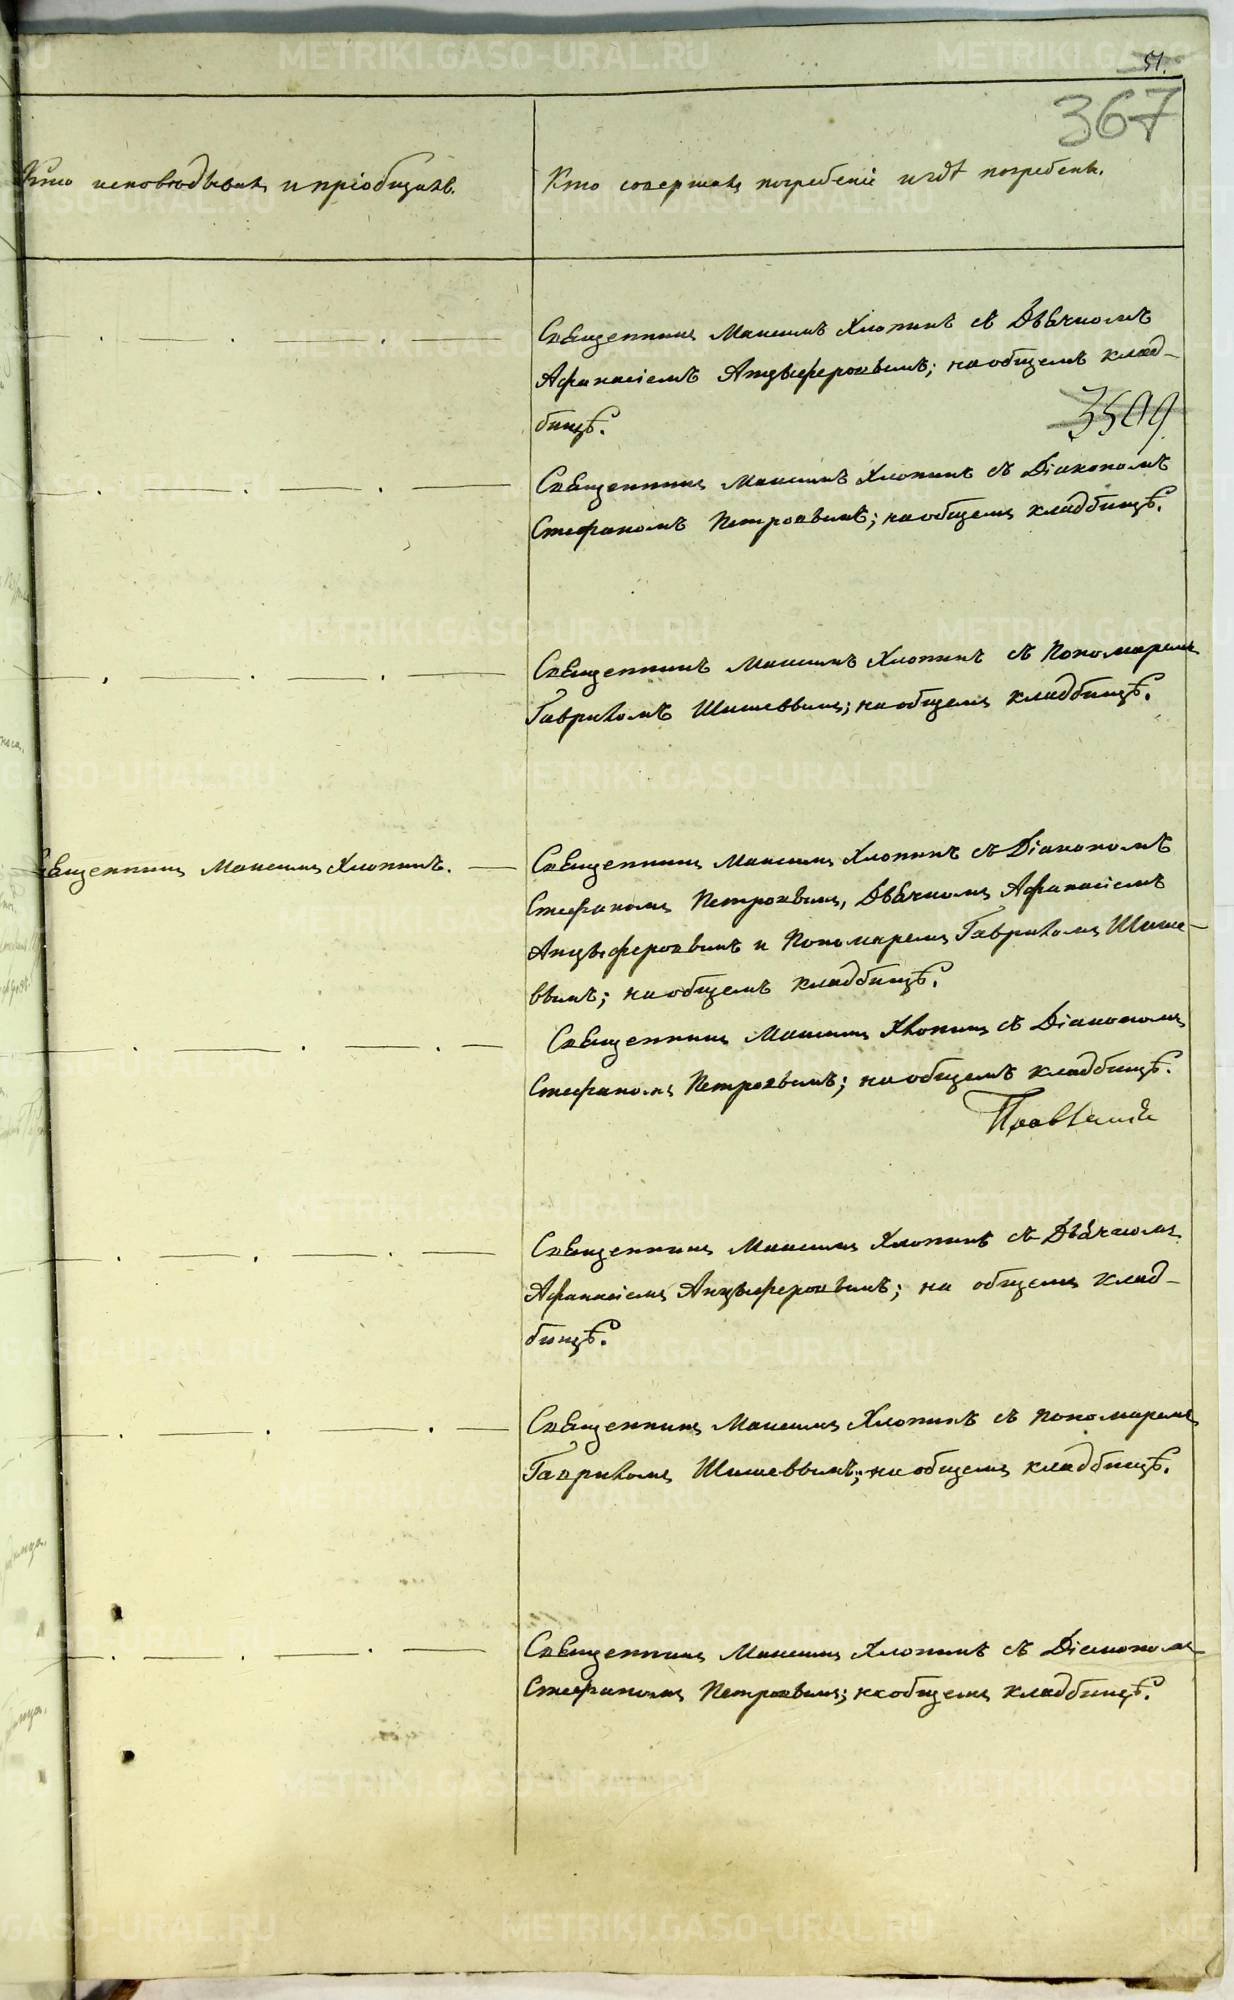 51.
367
Кто исповѣдывалъ и пріобщалъ.
Кто совершалъ погребеніе и гдѣ погребены.
Священникъ Максимъ Хлопинъ съ Дьячкомъ
Афанасіемъ Анцыферовымъ; на общемъ клад-
бищѣ.
3509
Священникъ Максимъ Хлопинъ съ Діакономъ
Стефаномъ Петровымъ; на общемъ кладбищѣ.
Священникъ Максимъ Хлопинъ съ Пономаремъ
Гавриломъ Шишевымъ; на общемъ кладбищѣ.
Священникъ Максимъ Хлопинъ.
Священникъ Максимъ Хлопинъ съ Діакономъ
Стефаномъ Петровымъ, Дьячкомъ Афанасіемъ
Анцыферовымъ и Пономаремъ Гавриломъ Шише-
вымъ; на общемъ кладбищѣ.
Священникъ Максимъ Хлопинъ съ Діакономъ
Стефаномъ Петровымъ; на общемъ кладбищѣ.
Священникъ Максимъ Хлопинъ съ Дьячкомъ
Афанасіемъ Анцыферовымъ; на общемъ клад-
бищѣ.
Священникъ Максимъ Хлопинъ съ Пономаремъ
Гавриломъ Шишевымъ; на общемъ кладбищѣ.
Священникъ Максимъ Хлопинъ съ Діакономъ
Стефаномъ Петровымъ; на общемъ кладбищѣ.
METRIKI.GASO-URAL.RU